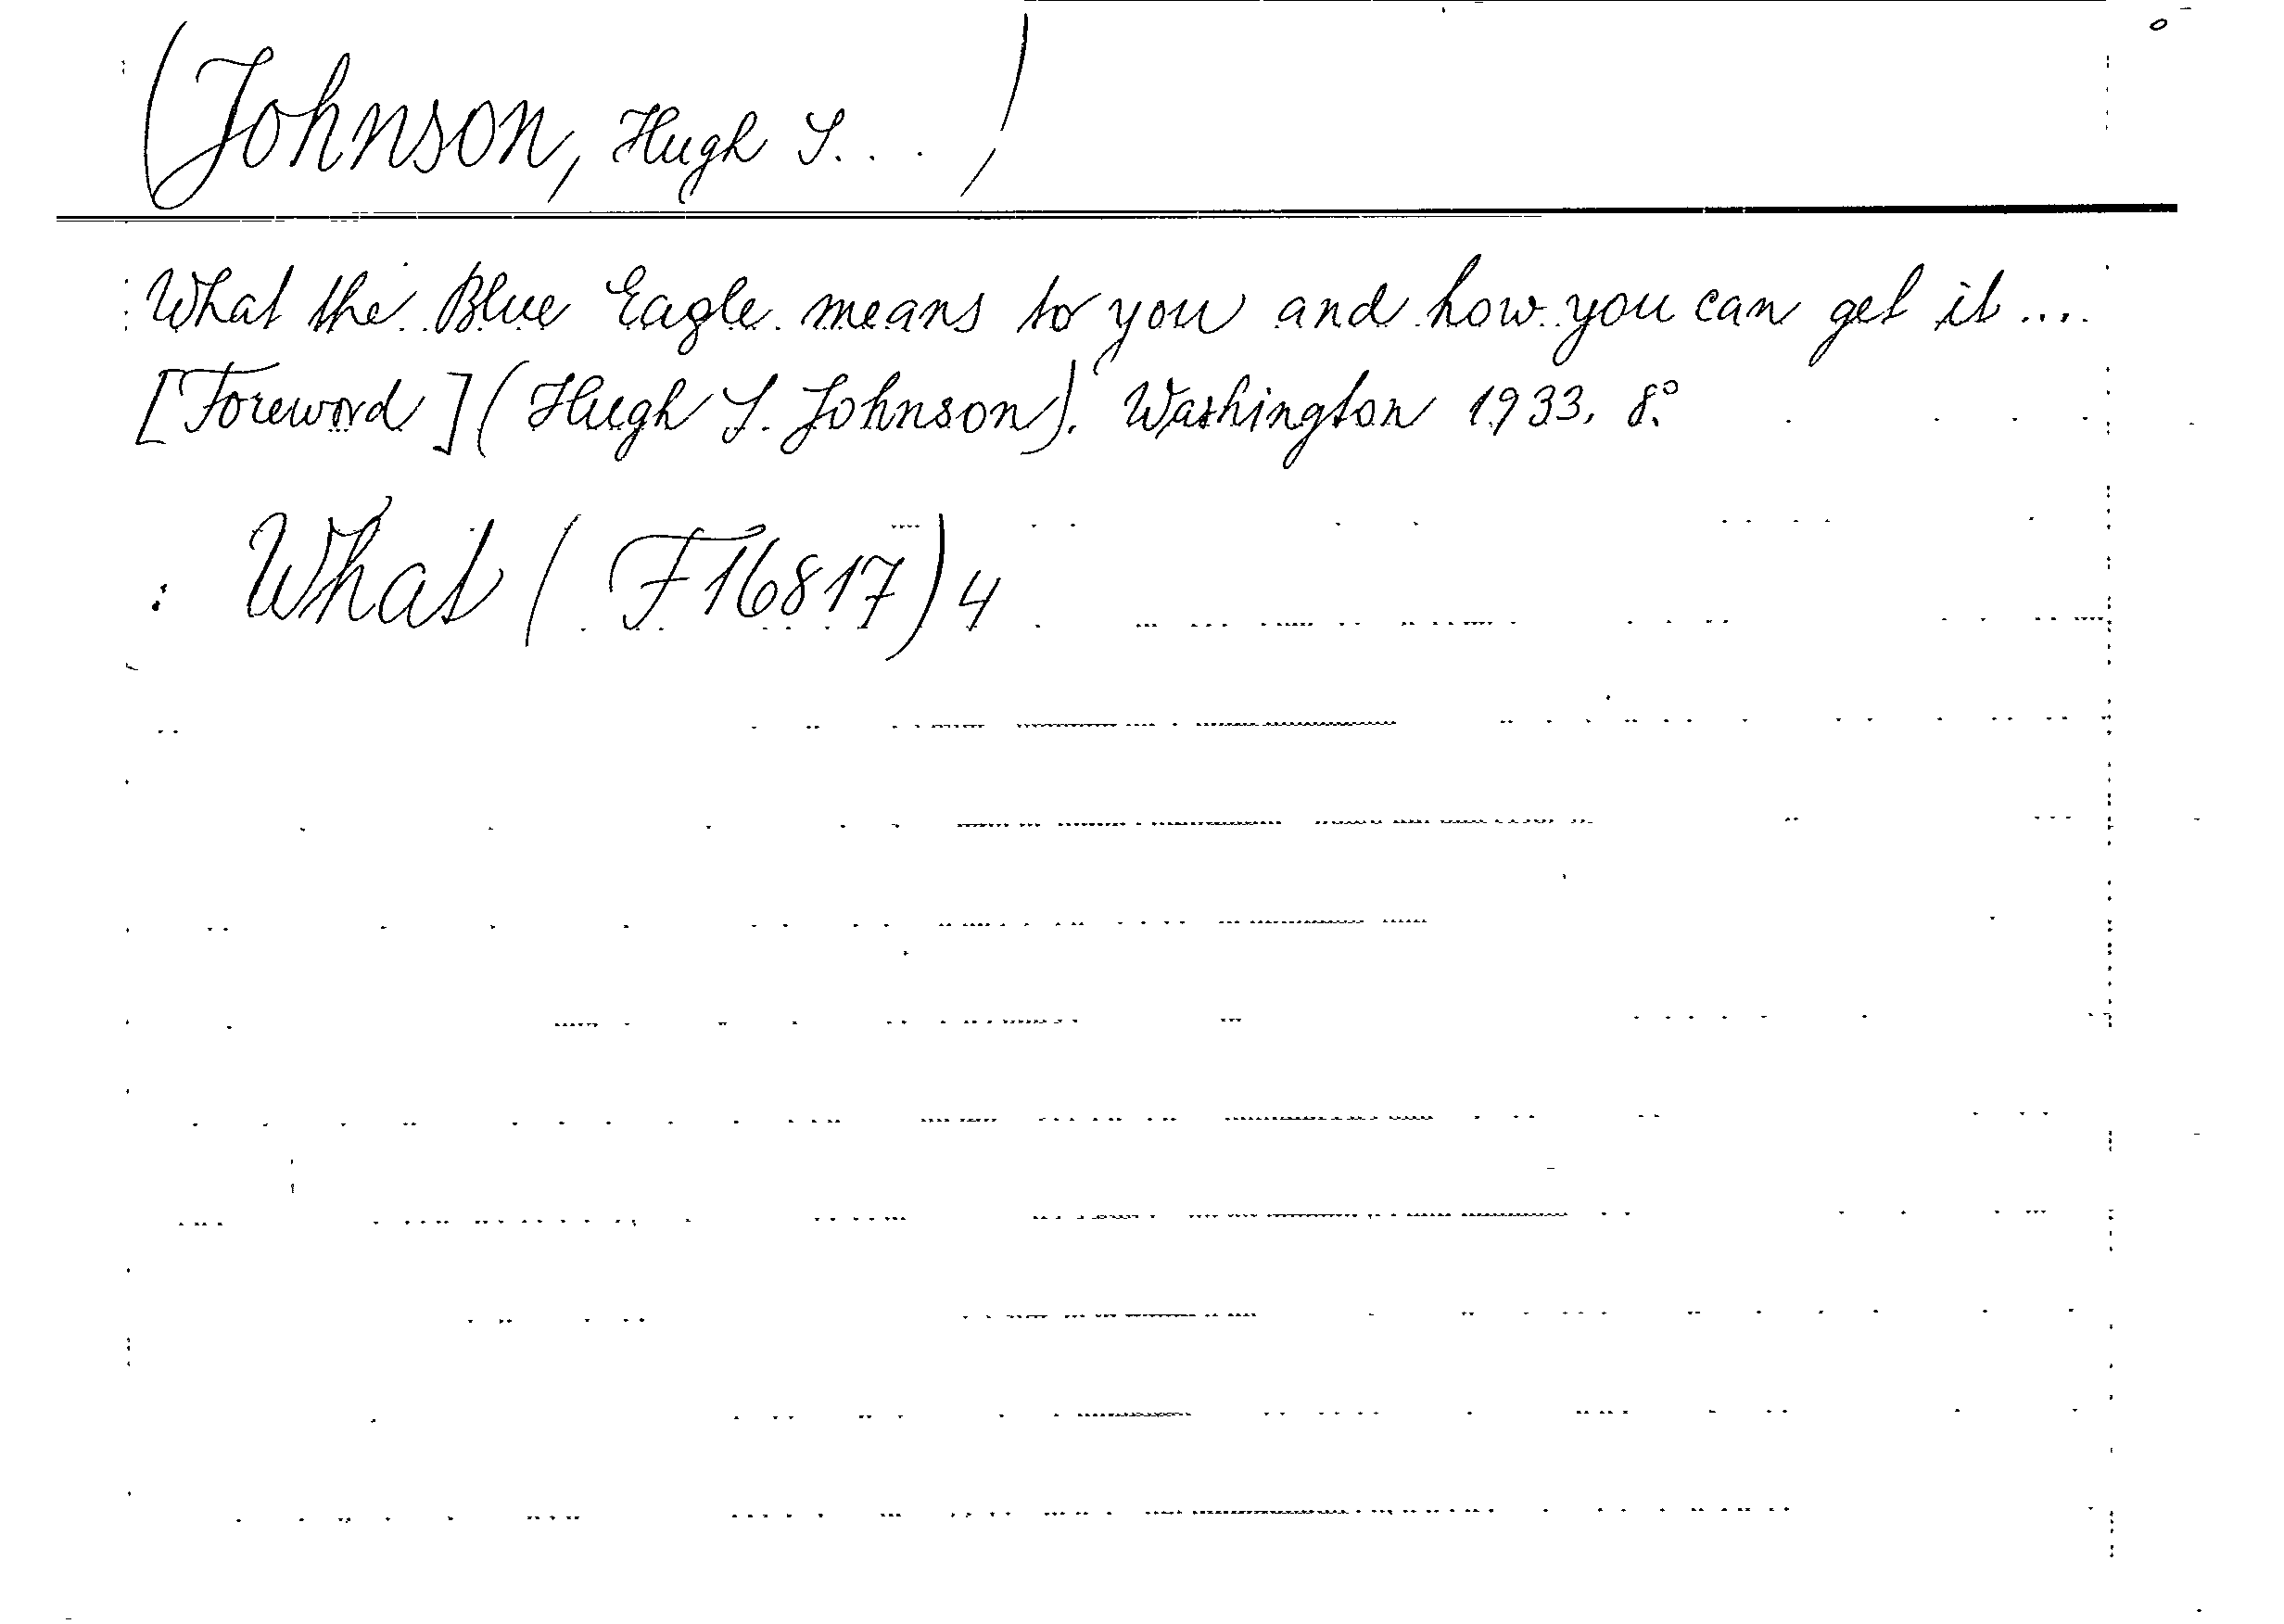 (Johnson, Hugh S. . . )
What the Blue Eagle means to you and how you can get it ....
[Foreword] (Hugh S. Johnson). Washington 1933. 8°.
What (F16817) 4